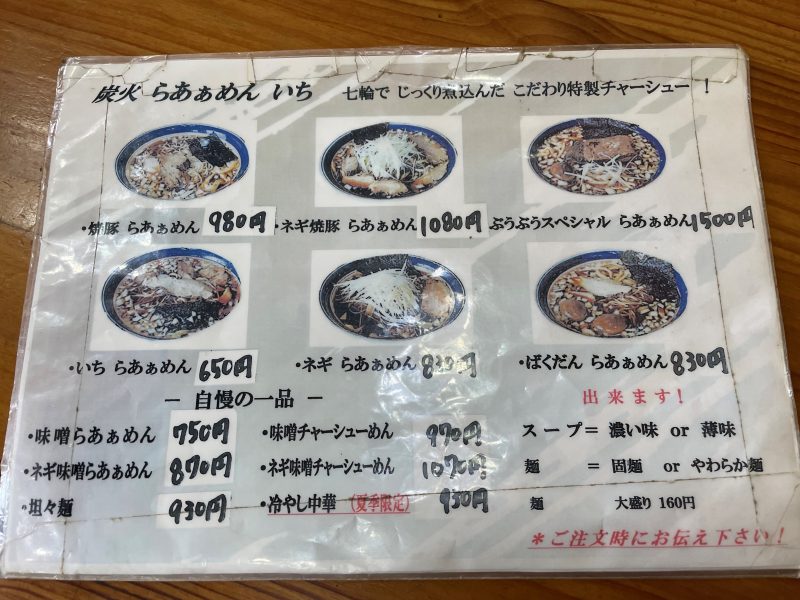 炭火 らあぁめん いち 七輪で じっくり煮込んだ こだわり特製チャーシュー !
・焼豚 らあぁめん 980円 ・ネギ焼豚 らあぁめん 1080円 ぶうぶうスペシャル らあぁめん 1500円
・いち らあぁめん 650円 ・ネギ らあぁめん 830円 ・ばくだん らあぁめん 830円
― 自慢の一品 ― 出来ます!
・味噌らあぁめん 750円 ・味噌チャーシューめん 970円 スープ= 濃い味 or 薄味
・ネギ味噌らあぁめん 870円 ・ネギ味噌チャーシューめん 1070円 麺 = 固麺 or やわらか麺
・坦々麺 930円 ・冷やし中華 (夏季限定) 930円 麺 大盛り 160円
*ご注文時にお伝え下さい!